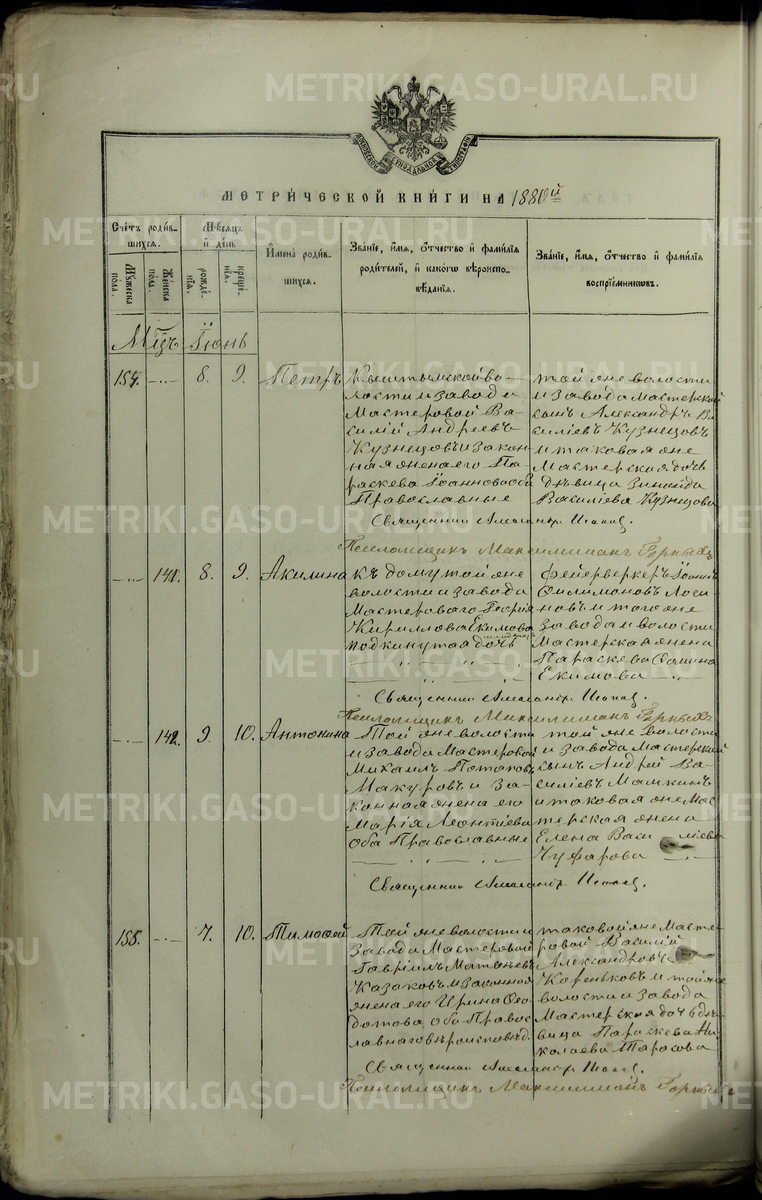 METRIKI.GASO-URAL.RU
МОСКОВСКОЙ СѴНОДАЛЬНОЙ ТИПОГРАФІИ
МЕТРИ́ЧЕСКОЙ КНИ́ГИ НА 1880й
Сче́тъ роди́вшихся.
Мѣ́сяцъ и҆ де́нь
И҆мена̀ роди́вшихся.
Зва́нїе, и҆́мѧ, ѻ҆́тчество и҆ фами́лїѧ родителей, и҆ како́гѡ вѣроисповѣ́данїѧ.
Зва́нїе, и҆́мѧ, ѻ҆́тчество и҆ фами́лїѧ воспрїе́мникѡвъ.
Мꙋ́жеска по́ла.
Же́нска по́ла.
рожде́нїѧ.
креще́нїѧ.
Мцъ Іюнь
154. 8. 9. Петръ
Кыштымской во-
лости и завода
Мастеровой Ва-
силій Андреевъ
Кузнецовъ и закон-
ная жена его Па-
раскева Іоаннова оба
Православные
той же волости
и завода Мастерской
сынъ Александръ Ва-
силіевъ Кузнецовъ
и таковая же
Мастерская дочь
дѣвица Зинаида
Василіева Кузнецова
Священникъ Александръ
Псаломщикъ Максимиліанъ
141. 8. 9. Акилина
къ дому той же
волости и завода
Мастероваго Георгія
Кириллова Екимова
подкинутая дочь
фейерверкеръ Іоаннъ
Филимоновъ
новъ и того же
завода и волости
Мастерская жена
Параскева Фомина
Екимова
Священникъ Александръ
Псаломщикъ Максимиліанъ
142. 9. 10. Антонина
Той же волости
и завода Мастеровой
Михаилъ Потаповъ
Макуровъ и за-
конная жена его
Марія Леонтіева
оба Православные
той же волости
и завода Мастерский
сынъ Андрей Ва-
силіевъ Мамкинъ
и таковая же Мас-
терская жена
Елена Василіева
Чуфарова
Священникъ Александръ
155. 7. 10. Тимофей
Той же волости и
завода Мастеровой
Гавріилъ Матвѣевъ
Казаковъ и законная
жена его Ирина Фео-
дотова, оба Правос-
лавнаго вѣроисповѣд.
таковой же Масте-
ровой Василій
Александровъ
Кореньковъ и той же
волости и завода
Мастерская дочь дѣ-
вица Параскева Ни-
колаева Тарасова
Священникъ Александръ
Псаломщикъ Максимиліанъ